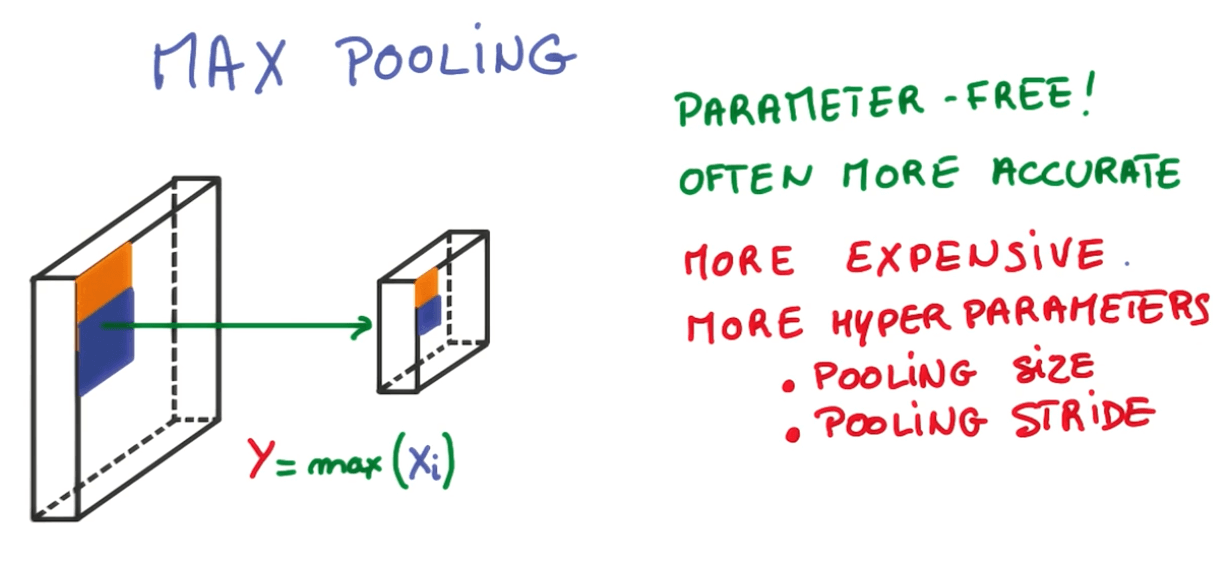 MAX POOLING
PARAMETER-FREE!
OFTEN MORE ACCURATE
MORE EXPENSIVE.
MORE HYPERPARAMETERS
• POOLING SIZE
• POOLING STRIDE
Y = max (Xi)